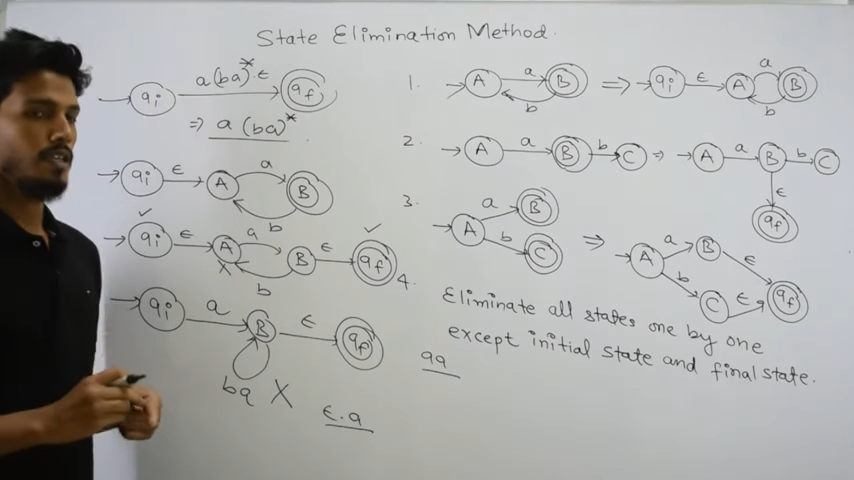 State Elimination Method.
qi a(ba)*.ε qf
⇒ a(ba)*
qi ε A a B b
qi ε A a B b ε qf
X
qi a B ε qf
ba X
ε.a
1. A a B b ⇒ qi ε A a B b
2. A a B b C ⇒ A a B b C ε qf
3. A a B b C ⇒ A a B ε b C ε qf
4. Eliminate all states one by one
except initial state and final state.
qq